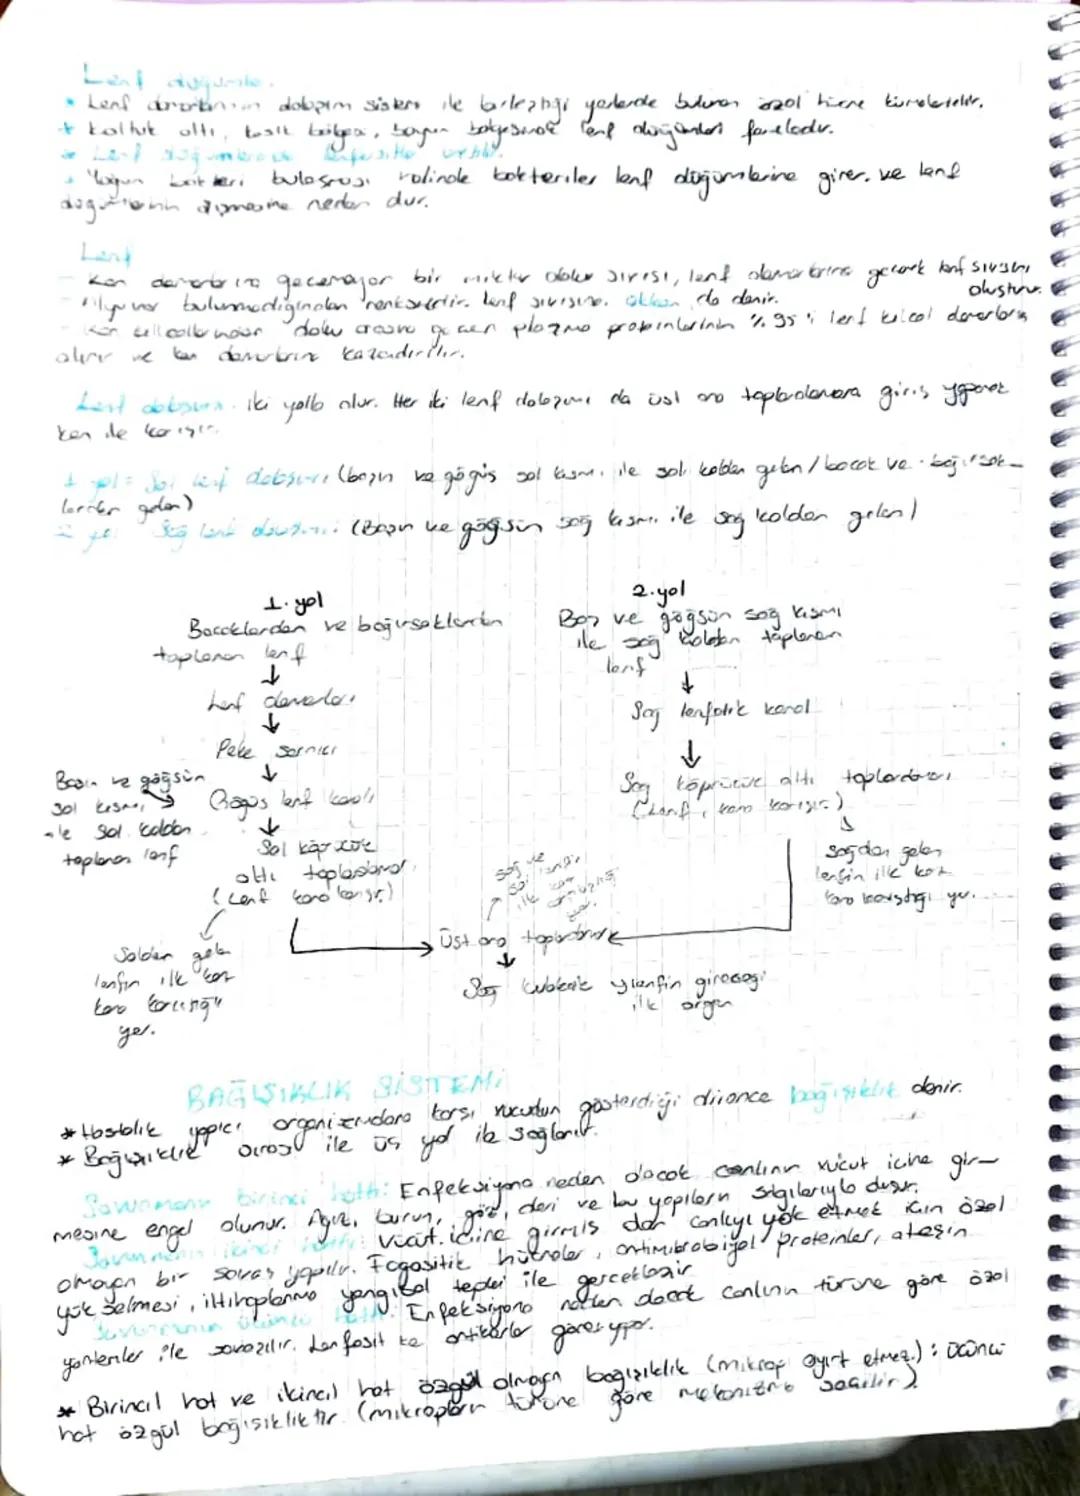 Lenf düğümleri
* Lenf damarlarının dolaşım sistemi ile birleştiği yerlerde bulunan özel hücre kümeleridir.
* Koltuk altı, kasık bölgesi, boyun bölgesinde lenf düğümleri fazladır.
* Lenf düğümlerinde lenfositler üretilir.
* Yoğun bakteri bulaşması halinde bakteriler lenf düğümlerine girer. ve lenf
düğümlerinin şişmesine neden dur.
Lenf
- Kan damarlarına geçemeyen bir miktar doku sıvısı, lenf damarlarına geçerek lenf sıvısını
oluşturur.
- Alyuvar bulunmadığından renksizdir. Lenf sıvısına, akkan da denir.
- Kan kılcallarından doku arasına geçen plazma proteinlerinin %95'i lenf kılcal damarlarla
alınır ve kan damarlarına kazandırılır.
Lenf dolaşımı iki yolla olur. Her iki lenf dolaşımı da üst ana toplardamara giriş yaparak
kan ile karışır.
1. yol= Sol lenf dolaşımı (başın ve göğüs sol kısmı ile sol koldan gelen/bacak ve bağırsak-
lardan gelen)
2. yol Sağ lenf dolaşımı: (Başın ve göğsün sağ kısmı ile sağ koldan gelen)
1. yol
Bacaklardan ve bağırsaklardan
toplanan lenf
↓
Lenf damarları
↓
Peke sarnıcı
↓
Göğüs lenf kanalı
↓
Sol köprücük
altı toplardamar
(Lenf kana karışır.)
Başın ve göğsün
sol kısmı
ile sol koldan
toplanan lenf
Soldan gelen
lenfin ilk kez
kana karıştığı
yer.
2. yol
Baş ve göğsün sağ kısmı
ile sağ koldan toplanan
lenf
↓
Sağ lenfatik kanal
↓
Sağ köprücük altı toplardamarı
(Lenf, kana karışır.)
Sağdan gelen
lenfin ilk kez
kana karıştığı yer.
sağ ve
sol lenfin
ilk kez
Üst ana toplardamar
↓
Sağ kulakçık → lenfin gireceği
ilk organ
BAĞIŞIKLIK SİSTEMİ
* Hastalık yapıcı organizmalara karşı vücudun gösterdiği dirence bağışıklık denir.
* Bağışıklık ile üç yol ile sağlanır.
Savunmanın birinci hattı: Enfeksiyona neden olacak canlının vücut içine gir-
mesine engel olunur. Ağız, burun, göz, deri ve bu yapıların salgılarıyla oluşur.
Savunmanın ikinci hattı: Vücut içine girmiş olan canlıyı yok etmek için özel
olmayan bir savaş yapılır. Fagositik hücreler, antimikrobiyal proteinler, ateşin
yükselmesi, iltihaplanma yangısal tepki ile gerçekleşir
Savunmanın üçüncü hattı: Enfeksiyona neden olacak canlının türüne göre özel
yöntemler ile savaşılır. Lenfosit ve antikorlar görev yapar.
* Birincil hat ve ikincil hat özgül olmayan bağışıklık (mikrop ayırt etmez.): Üçüncü
hat özgül bağışıklıktır. (mikropların türüne göre mekanizma seçilir.)